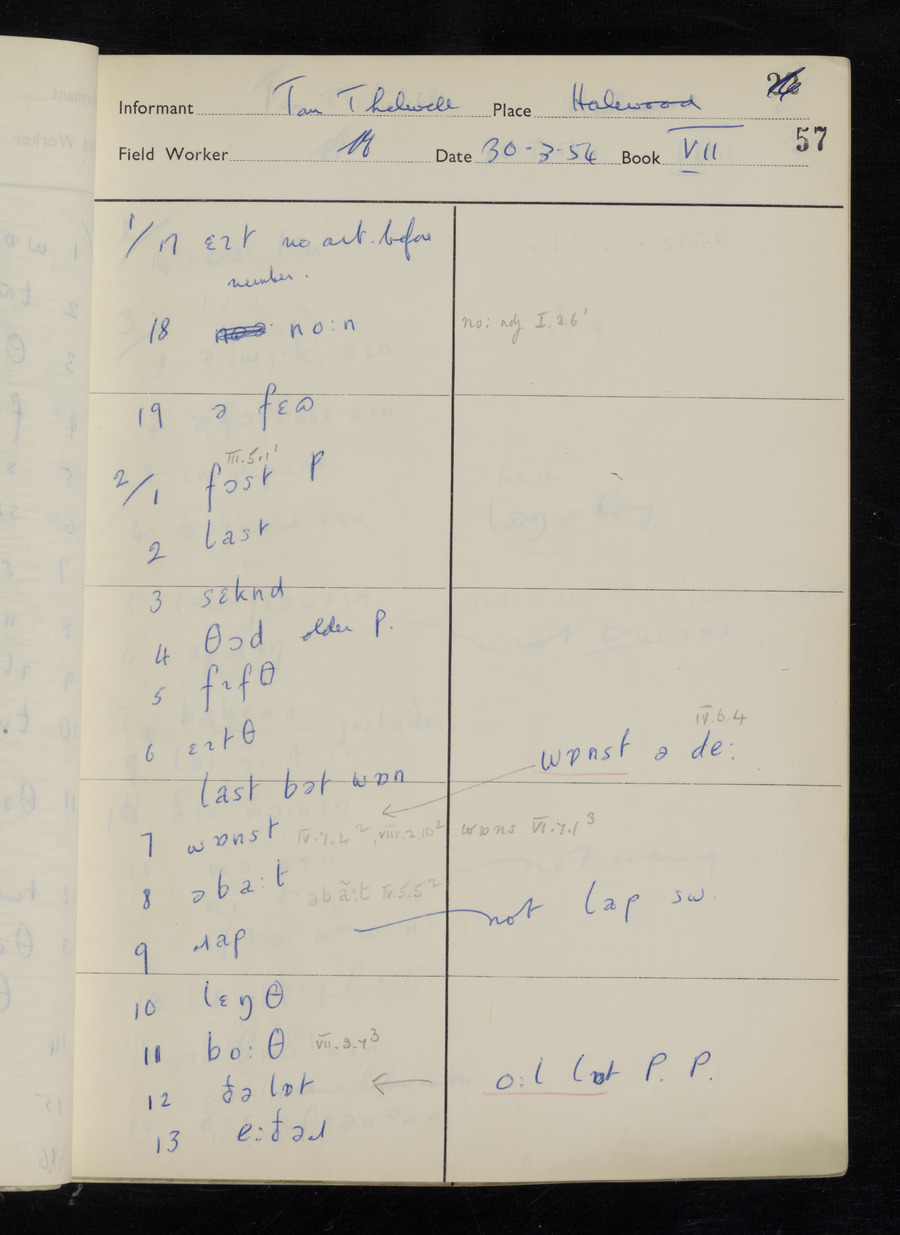 Informant Tom Thelwell Place Halewood
57
Field Worker Date 30-3-54 Book VII
1/17 ɛɪt no art. before
number.
18 no:n
no: adj I.3.6¹
19 ə fɛʊ
III.5.1¹
2/1 fɔst P
2 last
3 sɛknd
4 θɔd older P.
5 fɪfθ
6 ɛɪtθ
IV.6.4
wɒnst ə de:
last bət wɒn
7 wɒnst IV.7.4², VIII.2.10² wɒns VI.7.1³
8 əba:t əbã:t IV.5.5²
9 ɹap not lap sw.
10 lɛŋθ
11 bo:θ VII.3.7³
12 ðə lɒt o:l lɒt P. P.
13 e:ðəɹ